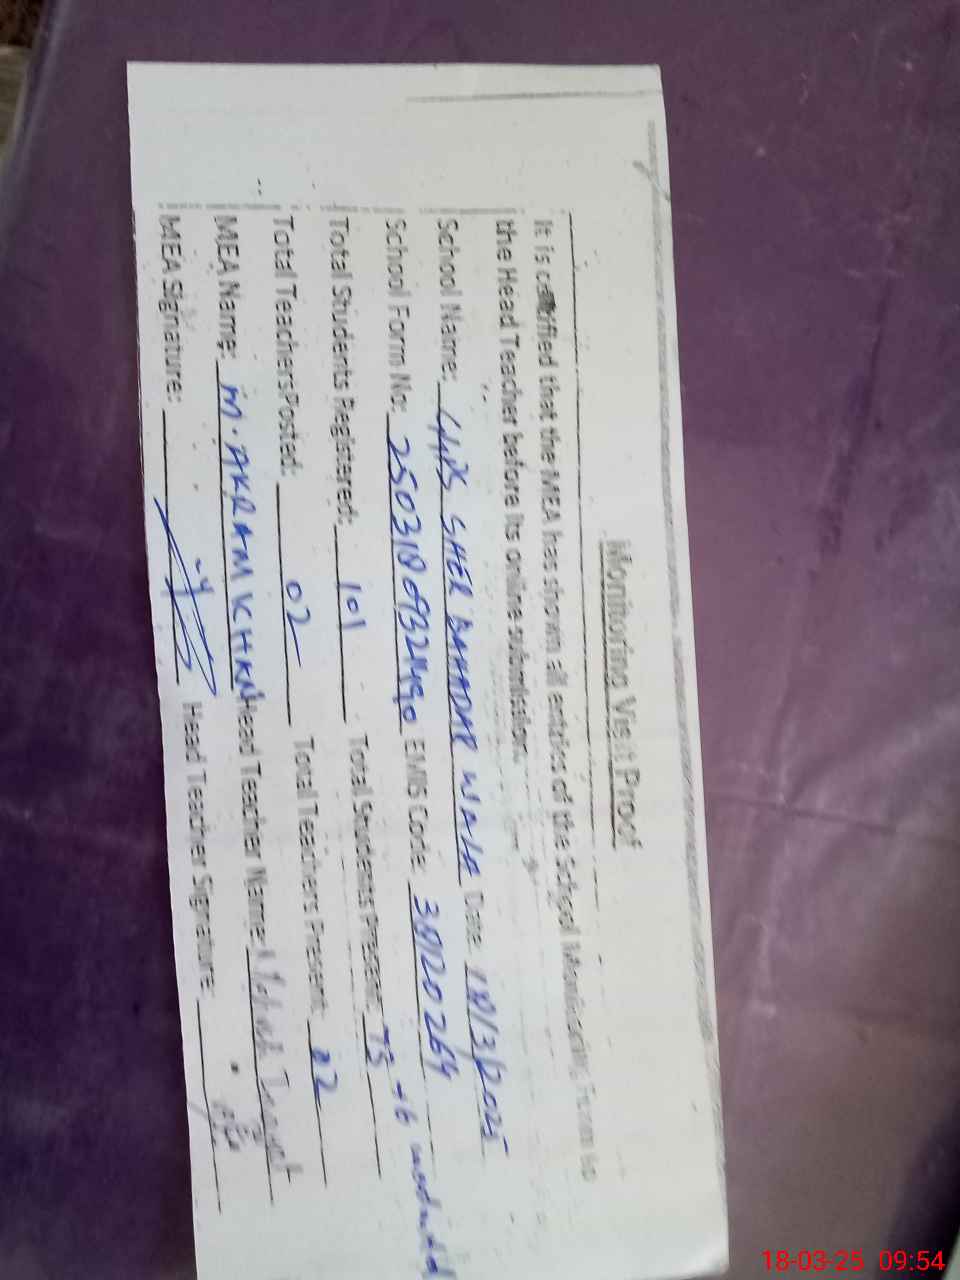 Monitoring Visit Proof
It is certified that the MEA has shown all entries of the School Monitoring Form to
the Head Teacher before its online submission.
School Name: GMPS SHER BAHADAR WALA Date: 18/3/2025
School Form No: EMIS Code: 38120264
Total Students Registered: 101 Total Students Present: 75
Total Teachers Posted: 02 Total Teachers Present: 02
MEA Name: M. AKRAM KHAN Head Teacher Name:
MEA Signature: Head Teacher Signature:
18-03-25 09:54